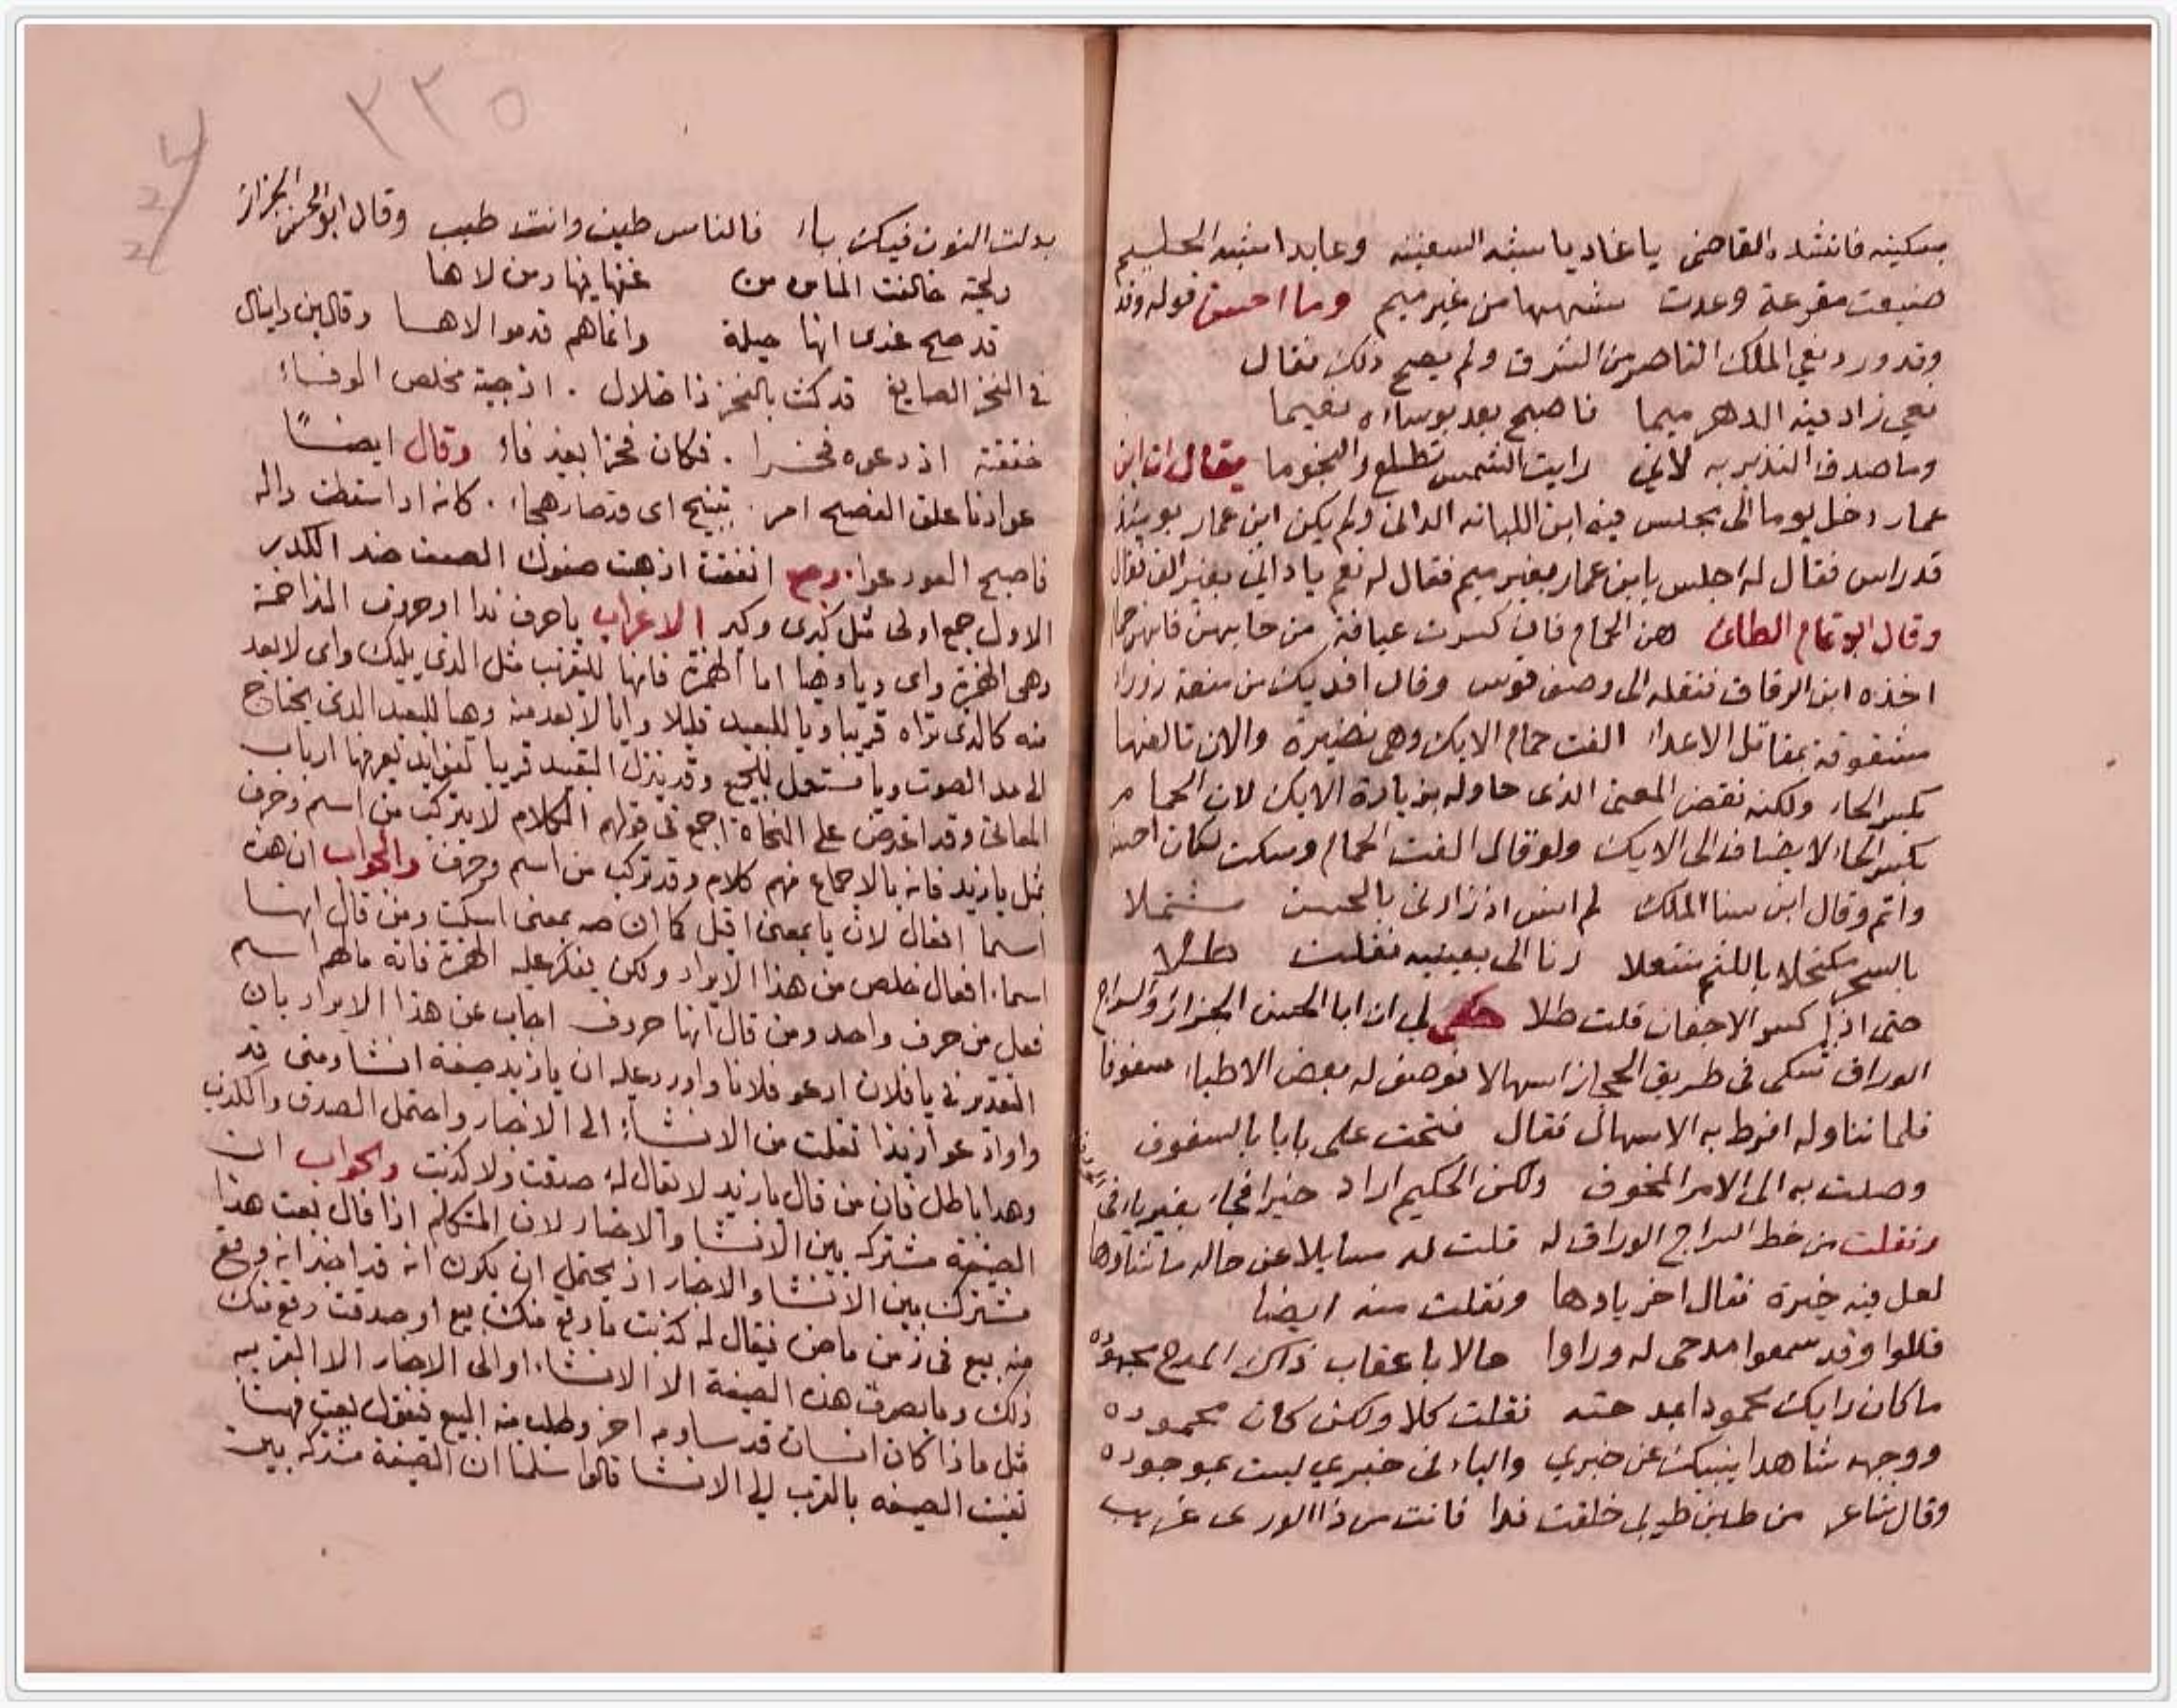 بسكينه فانشده القاضي يا غاديا يشبه السفينه وعابدا يشبه الحليم
ضيعت مقرعة وعدت شبهها من غير ميم وما احسن قوله وقد
وقد ورد نعي الملك الناصر من الشرق ولم يصح ذلك فقال
نعي زاد فيه الدهر ميما فاصبح بعد بوساه نعيما
وما صدق النذير به لاني رايت الشمس تطلع والنجوما يقال ان ابن
عمار دخل يوما الى مجلس فيه ابن اللبانه الداني ولم يكن ابن عمار يوميذ
قد راس فقال له اجلس يا ابن عمار بغير ميم فقال له نعم يا داني بغير الف فقال
وقال ابو تمام الطائي هن الحمام فان كسرت عيافة من حايهن فانهن حمام
اخذه ابن الرقاق فنقله الى وصف قوس وقال افديك من منعة زوراء
مشغوفة بمقاتل الاعداء الفت حمام الايك وهي نضيرة والان تالفها
بكسر الحاء ولكنه نقض المعنى الذي حاوله بزيادة الايك لان الحمام
بكسر الحاء لا يضاف الى الايك ولو قال الفت الحمام وسكت لكان احسن
واتم وقال ابن سنا الملك لم انس اذ زارني بالحسن مشتملا
بالسحر مكتحلا باللثم منتعلا رنا الى بعينيه فقلت طلا
حتى اذا كسر الاجفان قلت طلا حكى لي ان ابا الحسن الجزار والسراج
الوراق تشكى في طريق الحجاز اسهالا فوصف له بعض الاطباء سفوفا
فلما تناوله افرط به الاسهال فقال فتحت على بابا بالسفوف
وصلت به الى الامر المخوف ولكن الحكيم اراد خيرا فجاء بغير ياء في
ونقلت من خط السراج الوراق له قلت له سايلا عن حاله ما شاوها
لعل فيه خيرة فقال اخر يا وها ونقلت منه ايضا
قالوا وقد سمعوا مدحي له وراوا حالا باعقاب ذاك المدح مجهوده
ما كان رايك محمودا به حتد فقلت كلا ولكن كان محموده
ووجهه شاهدا ينبيك عن خبري والباء في خبري ليست بموجوده
وقال شاعر من طين طوبى خلقت فذا فانت من ذا الورى غريب
٣٣٥
بدلت النون فيك باء فالناس طين وانت طيب وقال ابو الحسن الجزار
ولحية خالفت الناس من غنها فيها ومن لاها
قد صح عندي انها حيلة وانما هم قدموا لاهـا وقال ابن دانيال
في الفخر الصايغ قد كنت بالفخر ذا ضلال . اذ جيته مخلص الوفاء
خففة اذ دعوه فخـرا . فكان فخرا بغير فاء وقال ايضـا
عوادنا علق الفصيح امر . بقبيح اى قد صار هجاء . كانه اذ اسقطت داله
فاصبح العود عوا . رجع انفقت اذهبت صفوك الصفو ضد الكدر
الاول جمع اولى مثل كبرى وكبر الاعراب يا حرف ندا او حروف النداء خمسة
وهى الهمزة واى ويا وهيا اما الهمزة فانها للتقريب مثل الذي يليك واى لابعد
منه كالذي تراه قريبا ويا للبعيد قليلا وايا لابعد منه وهيا للبعيد الذي يحتاج
الى مد الصوت ويا مستعمل للجميع وقد ينزل البعيد قريبا لفوايد يعرفها ارباب
المعاني وقد اعترض على النحاة اجمع في قولهم الكلام لا يتركب من اسم وحرف
بمثل يا زيد فانه بالاجماع منهم كلام وقد تركب من اسم وحرف والجواب ان هذه
اسما افعال لان يا بمعنى اقبل كما ان صه بمعنى اسكت ومن قال انها
اسماء افعال خلص من هذا الايراد ولكن يعكر عليه الهمزة فانه ما هم اسم
فعل من حرف واحد ومن قال انها حروف اجاب عن هذا الايراد بان
التقدير في يا فلان ادعو فلانا واورد عليه ان يا زيد صيغة انشا ومتى قد
وا وادعوا زيدا نقلت من الانشاء الى الاخبار واحتمل الصدق والكذب
وهذا باطل فان من قال يا زيد لا يقال له صدقت ولا كذبت والجواب ان
الصيغة مشتركة بين الانشا والاخبار لان المتكلم اذا قال بعت هذا
مشترك بين الانشا والاخبار اذ يحتمل ان يكون انه قد اخبر انه وقع
منه بيع في زمن ماض فيقال له كذبت ما وقع منك بيع او صدقت وقع منك
ذلك وما يصرف هذه الصيغة الا الانشاء او الى الاخبار الا القرينه
مثل ما اذا كان انسان قد ساوم اخر وطلب منه البيع فتقول بعت فهنا
تعينت الصيغه بالقرب الى الانشا قالوا سلمنا ان الصيغة مشتركة بين